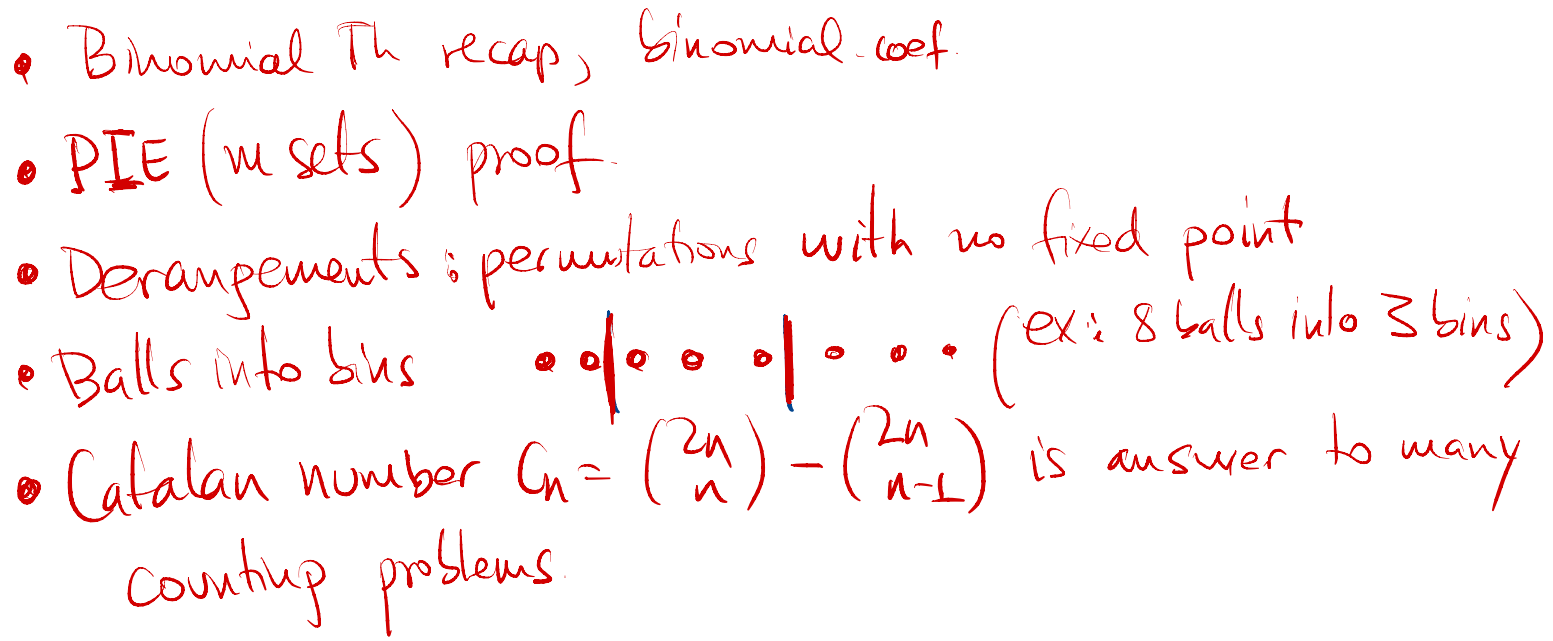 • Binomial Th recap, binomial coef.
• PIE (m sets) proof.
• Derangements: permutations with no fixed point
• Balls into bins (ex: 8 balls into 3 bins)
• Catalan number Cₙ = (2n n) - (2n n-1) is answer to many
counting problems.